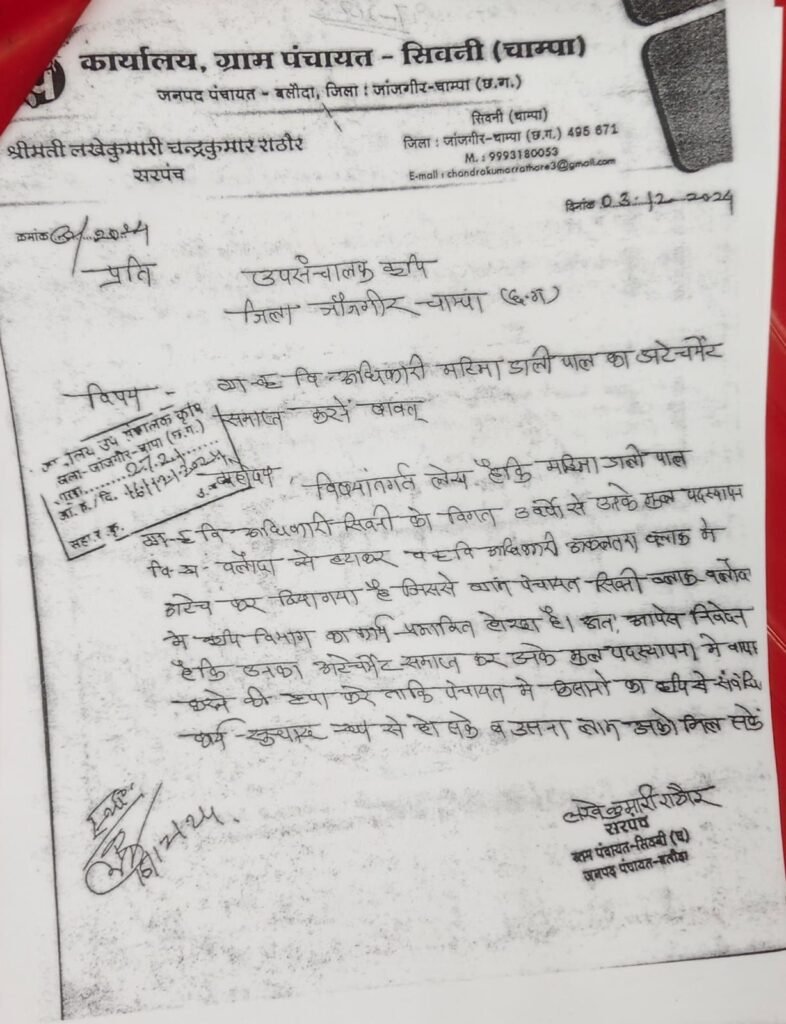 कार्यालय, ग्राम पंचायत - सिवनी (चाम्पा)
जनपद पंचायत - बलौदा, जिला : जांजगीर-चाम्पा (छ.ग.)
श्रीमती लखेकुमारी चन्द्रकुमार राठौर
सरपंच
सिवनी (चाम्पा)
जिला : जांजगीर-चाम्पा (छ.ग.) 495 671
M. : 9993180053
E-mail : chandrakumarrathore3@gmail.com
क्रमांक 2024
दिनांक 03.12.2024
प्रति
उपसंचालक कृषि
जिला जाँजगीर-चाम्पा (छ.ग)
विषय - ग्रा. कृ वि अधिकारी महिमा डाली पाल का अटेचमेंट
समाप्त करनें बावत्
महोदय
विषयांतर्गत लेख हैकि महिमा डाली पाल
ग्रा-कृ वि-अधिकारी सिवनी को विगत 3 वर्षो से उनके मुल पदस्थापन
वि.ख. बलौदा से हटाकर व कृवि अधिकारी अकलतरा ब्लाक मे
अटेच कर दिया गया है जिससे ग्राम पंचायत सिवनी ब्लाक बलौदा
मे कृषि विभाग का कार्य प्रभावित हो रहा है। अतः आपसे निवेदन
हैकि उनका अटेचमेंट समाप्त कर उनके मुल पदस्थापना मे वापस
करने की कृपा करे ताकि पंचायत मे किसानो का कृषि से संबंधित
कार्य सुचारू रूप से हो सके व उसना लाभ उनको मिल सकें
लखेकुमारी राठौर
सरपंच
ग्राम पंचायत-सिवनी (च)
जनपद पंचायत-बलौदा
उप संचालक कृषि
जिला-जांजगीर-चांपा (छ.ग.)